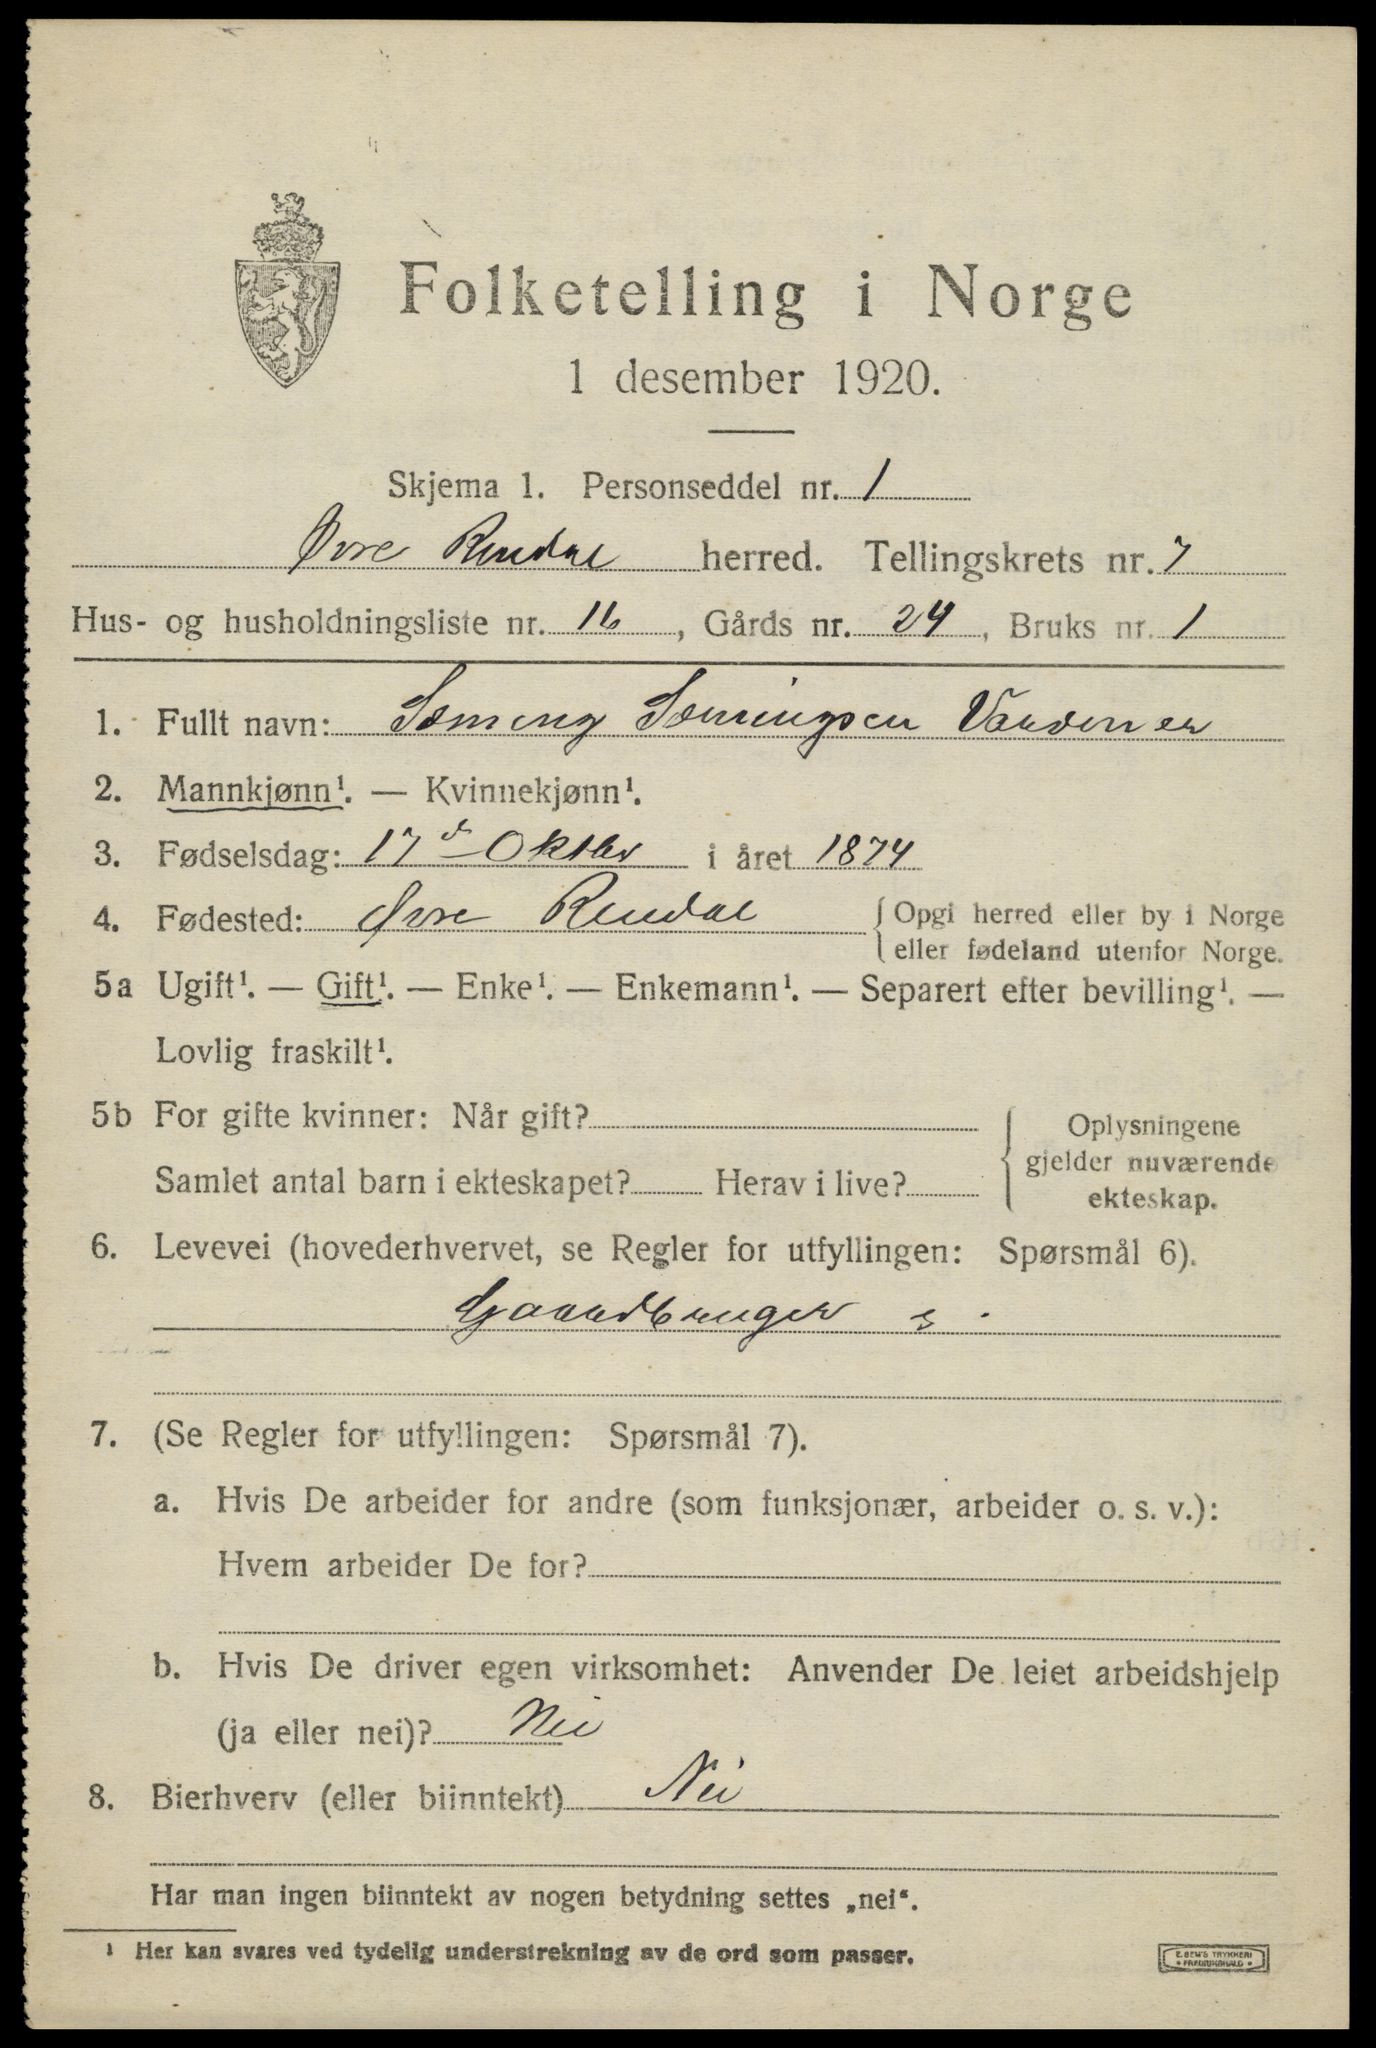 Folketelling i Norge
1 desember 1920.
Skjema 1. Personseddel nr. 1
Øvre Rendal herred. Tellingskrets nr. 7
Hus- og husholdningsliste nr. 16, Gårds nr. 24, Bruks nr. 1
1. Fullt navn: Sæming Sæmingsen
2. Mannkjønn¹. — Kvinnekjønn¹.
3. Fødselsdag: 17d Oktbr i året 1874
4. Fødested: Øvre Rendal {Opgi herred eller by i Norge
eller fødeland utenfor Norge.
5a Ugift¹. — Gift¹. — Enke¹. — Enkemann¹. — Separert efter bevilling¹. —
Lovlig fraskilt¹.
5b For gifte kvinner: Når gift?
Samlet antal barn i ekteskapet? Herav i live?
Oplysningene
gjelder nuværende
ekteskap.
6. Levevei (hovederhvervet, se Regler for utfyllingen: Spørsmål 6).
Gaardbruger s.
7. (Se Regler for utfyllingen: Spørsmål 7).
a. Hvis De arbeider for andre (som funksjonær, arbeider o. s. v.):
Hvem arbeider De for?
b. Hvis De driver egen virksomhet: Anvender De leiet arbeidshjelp
(ja eller nei)? Nei
8. Bierhverv (eller biinntekt) Nei
Har man ingen biinntekt av nogen betydning settes „nei“.
¹ Her kan svares ved tydelig understrekning av de ord som passer.
E. SEM'S TRYKKERI
* FREDRIKSHALD *